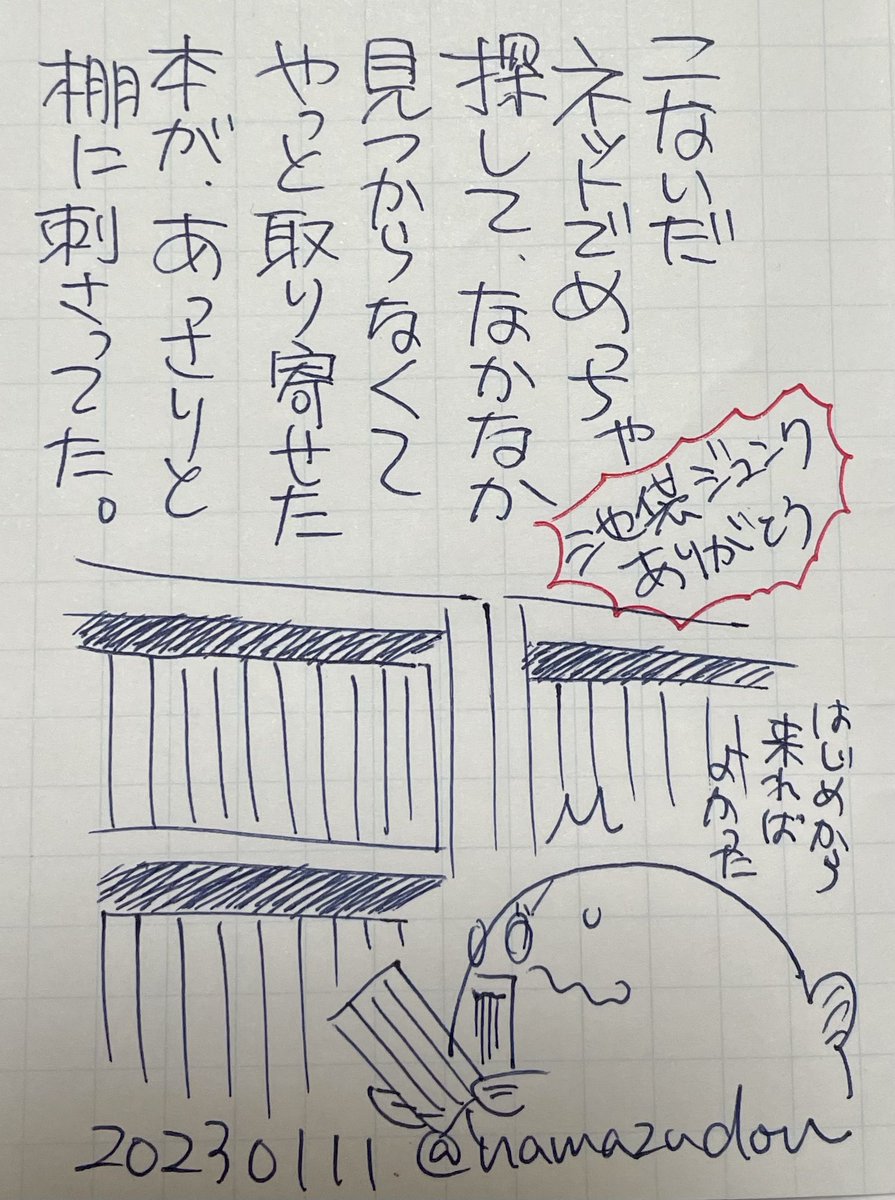 こないだ
ネットでめっちゃ
探して、なかなか
見つからなくて
やっと取り寄せた
本が、あっさりと
棚に刺さってた。
池袋ジュンク
ありがとう
はじめから
来れば
よかった
20230111 @namazudou